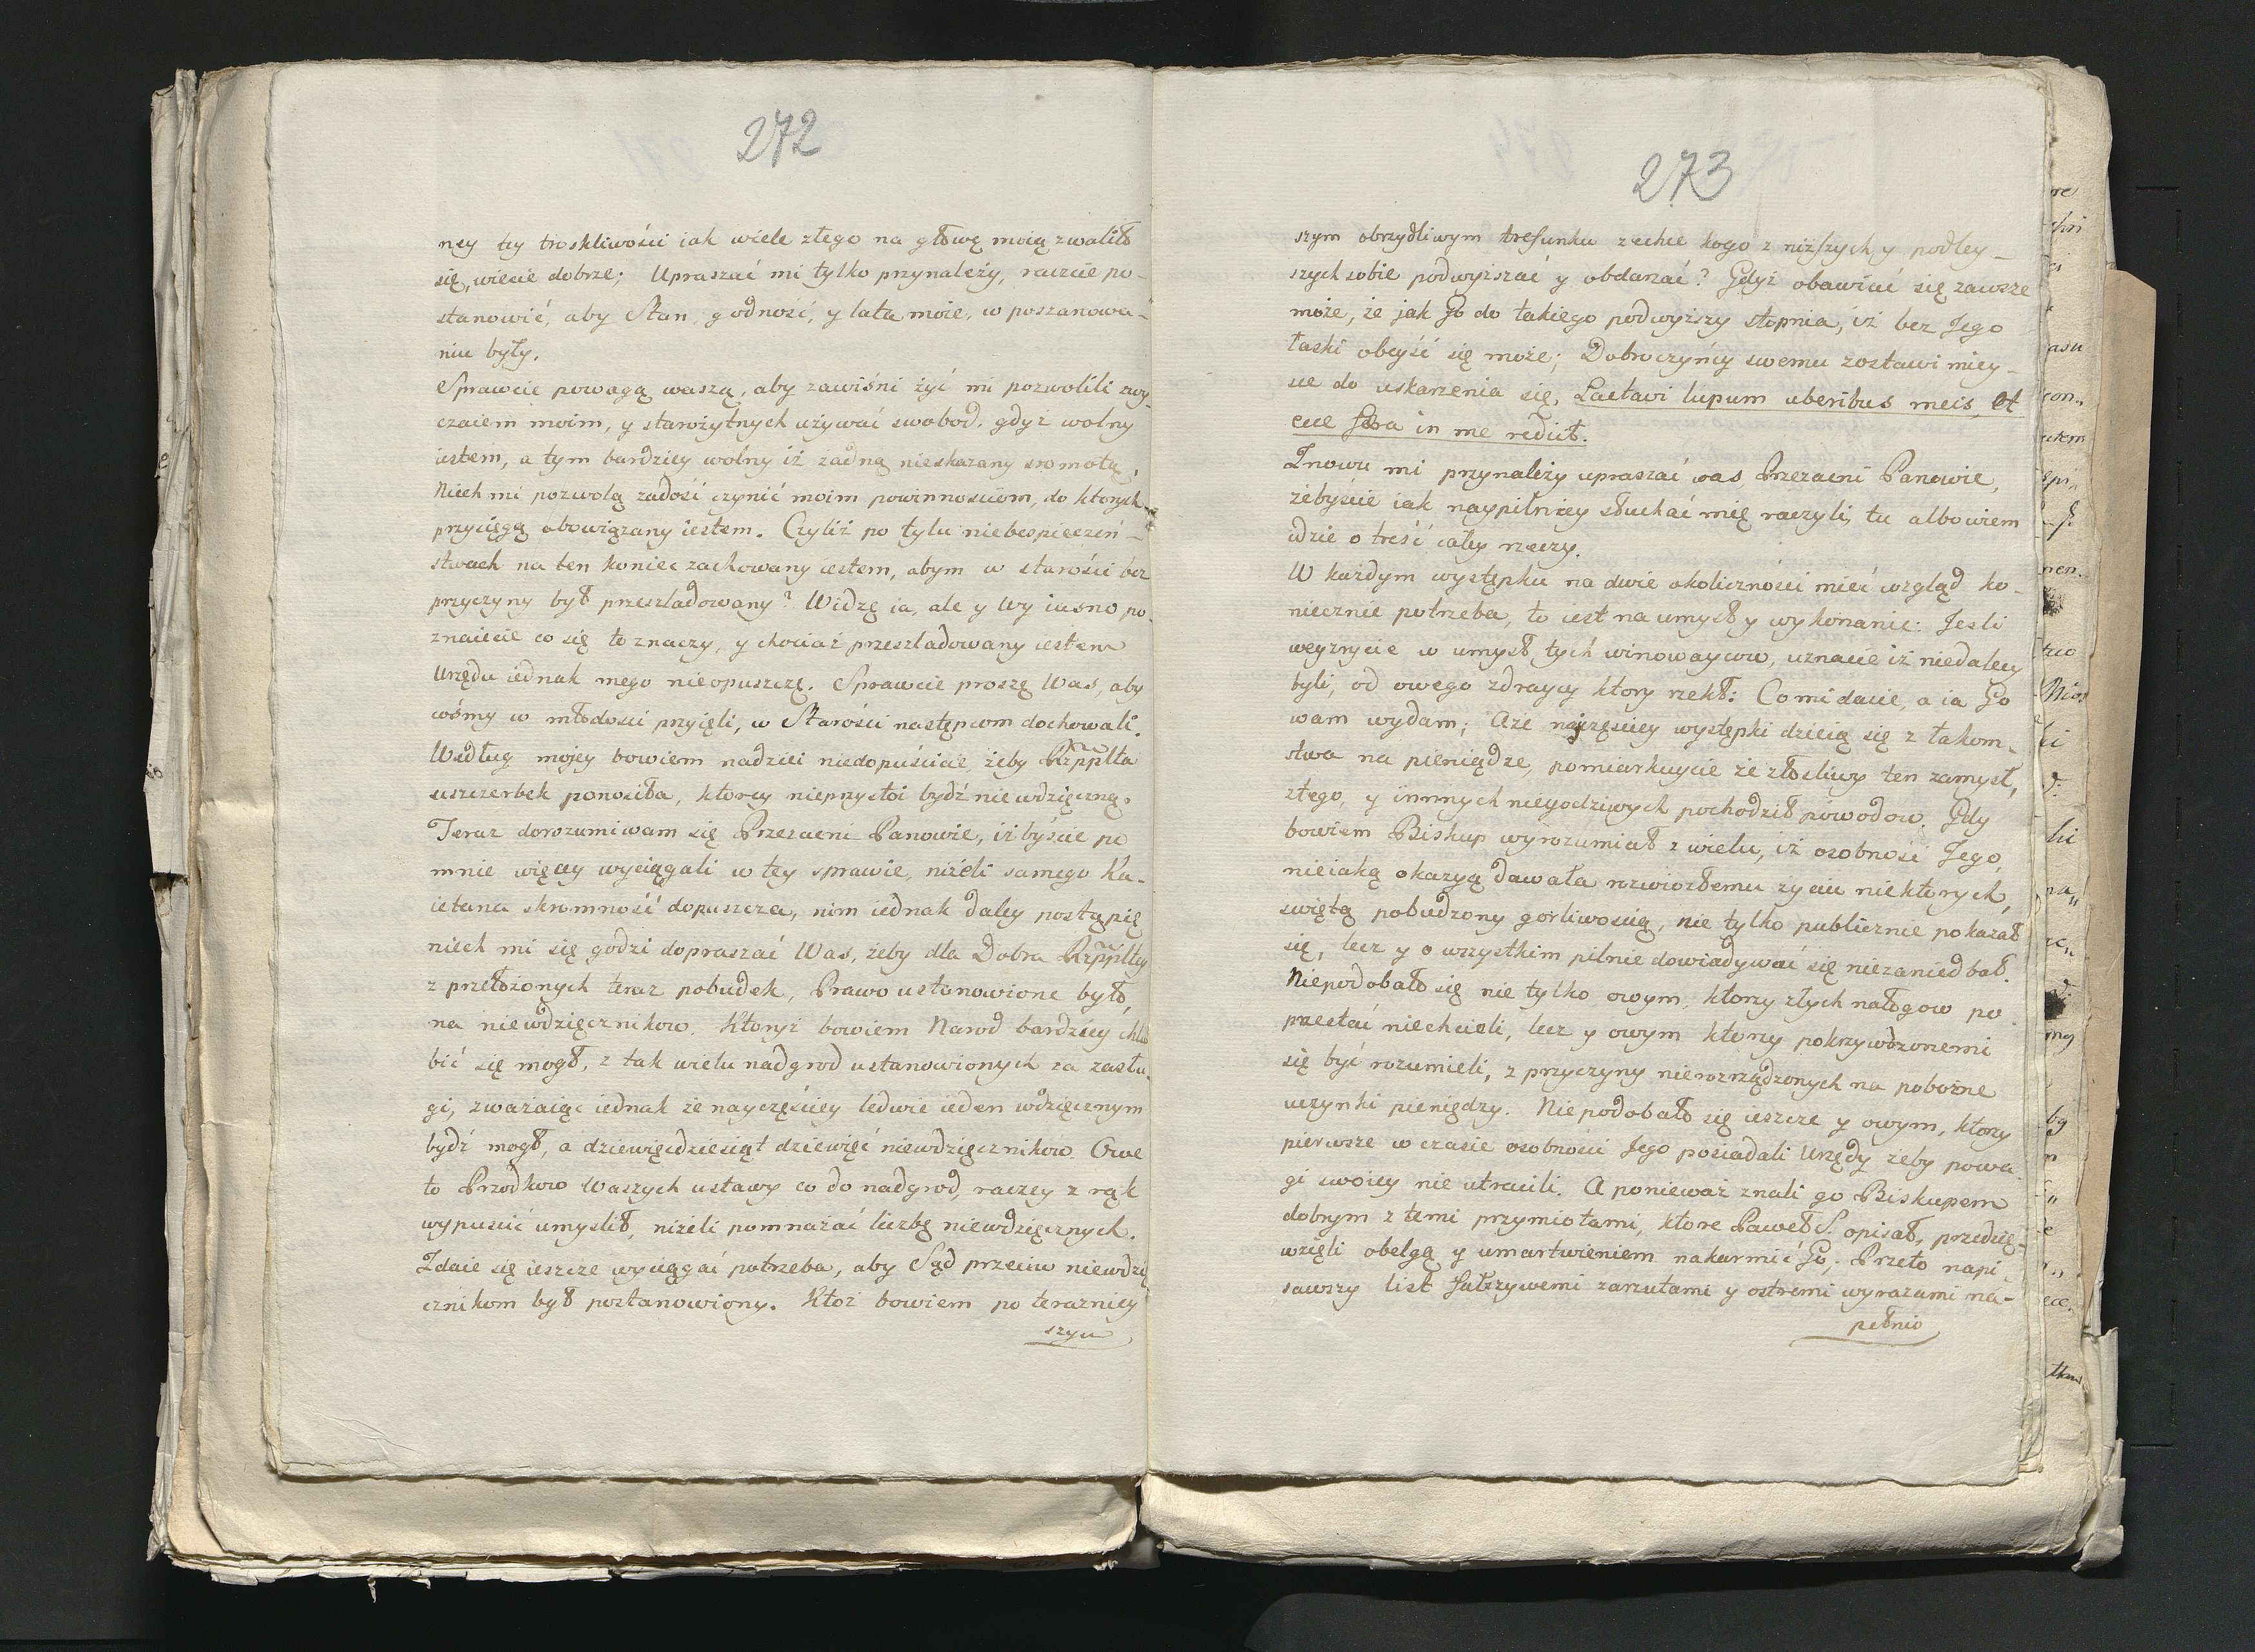 272
ney tey troskliwości iak wiele złego na głowę moią zwaliło
się, wiecie dobrze; Upraszać mi tylko przynależy, raczcie po-
stanowić, aby Stan, godność, y lata moie, w poszanowa-
niu były.
Sprawcie powagą waszą, aby zawiśni żyć mi pozwolili zwy-
czaiem moim, y starożytnych używać swobod, gdyż wolny
iestem, a tym bardziey wolny iż żadną nieskazany sromotą.
Niech mi pozwolą zadość czynić moim powinnościom, do ktorych
przysięgą obowiązany iestem. Czyliż po tylu niebespieczeń-
stwach na ten koniec zachowany iestem, abym w starości bez
przyczyny był przesladowany? Widzę ia, ale y Wy iasno po-
znaiecie co się to znaczy, y chociaż przesladowany iestem
Urzędu iednak mego nieopuszczę. Sprawcie proszę Was, aby
cośmy w młodości przyięli, w Starości następcom dochowali.
Według mojey bowiem nadziei niedopuścicie, żeby Rzpplta
uszczerbek ponosiła, ktorey nieprzystoi bydź niewdzięczną.
Teraz dorozumiwam się Przezacni Panowie, iż byście po
mnie więcey wyciągali w tey sprawie, niżeli samego Ka-
ietana skromność dopuszcza, nim iednak daley postąpię
niech mi się godzi dopraszać Was, żeby dla Dobra Rzpplty
z przełożonych teraz pobudek, Prawo ustanowione było,
na niewdzięcznikow. Ktoryż bowiem Narod bardziey chlu
bić się mogł, z tak wielu nadgrod ustanowionych za zasłu-
gi, zważaiąc iednak że nayczęściey ledwie ieden wdzięcznym
bydź mogł, a dziewięćdziesiąt dziewięć niewdzięcznikow. Owe
to Przodkow Waszych ustawy co do nadgrod, raczey z rąk
wypuścić umyslił, niżeli pomnażać liczbę niewdzięcznych.
Zdaie się ieszcze wyciągać potrzeba, aby Sąd przeciw niewdzię
cznikom był postanowiony. Ktoż bowiem po terazniey
szym
273
szym obrzydliwym trefunku zechce kogo z niższych y podley-
szych sobie podwyższać y obdarzać? Gdyż obawiać się zawsze
może, że jak Go do takiego podwyższy stopnia, iż bez Jego
łaski obeyść się może; Dobroczyńcy swemu zostawi miey-
sce do uskarżenia się, Lactavi lupum uberibus meis, et
ecce fera in me rediit.
Znowu mi przynależy upraszać was Przezacni Panowie,
żebyście iak naypilniey słuchać mię raczyli, tu albowiem
idzie o treść całey rzeczy.
W każdym występku na dwie okoliczności mieć wzgląd ko-
niecznie potrzeba, to iest na umysł y wykonanie: Jesli
weyrzycie w umysł tych winowaycow, uznacie iż niedalecy
byli, od owego zdraycy ktory rzekł: Co mi dacie, a ia Go
wam wydam; Aże najczęściey występki dzieią się z łakom-
stwa na pieniądze, pomiarkuycie że złośliwy ten zamysł,
złego, y innnych niegodziwych pochodził powodow. Gdy
bowiem Biskup wyrozumiał z wielu, iż osobność Jego,
nieiaką okazyą dawała rozwiozłemu życiu niektorych,
swiętą pobudzony gorliwością, nie tylko publicznie pokazał
się, lecz y o wszystkim pilnie dowiadywać się niezaniedbał.
Niepodobało się nie tylko owym, ktorzy złych nałogow po
przestać niechcieli, lecz y owym ktorzy pokrzywdzonemi
się być rozumieli, z przyczyny nierozrządzonych na pobożne
uczynki pieniędzy. Niepodobało się ieszcze y owym, ktorzy
pierwsze w czasie osobności Jego posiadali Urzędy żeby powa
gi swoiey nie utracili. A ponieważ znali go Biskupem
dobrym z temi przymiotami, ktore Paweł S. opisał, przedsię-
wzięli obelgą y umartwieniem nakarmić Go,. Przeto napi
sawszy list fałszywemi zarzutami y ostremi wyrazami na-
pełnio